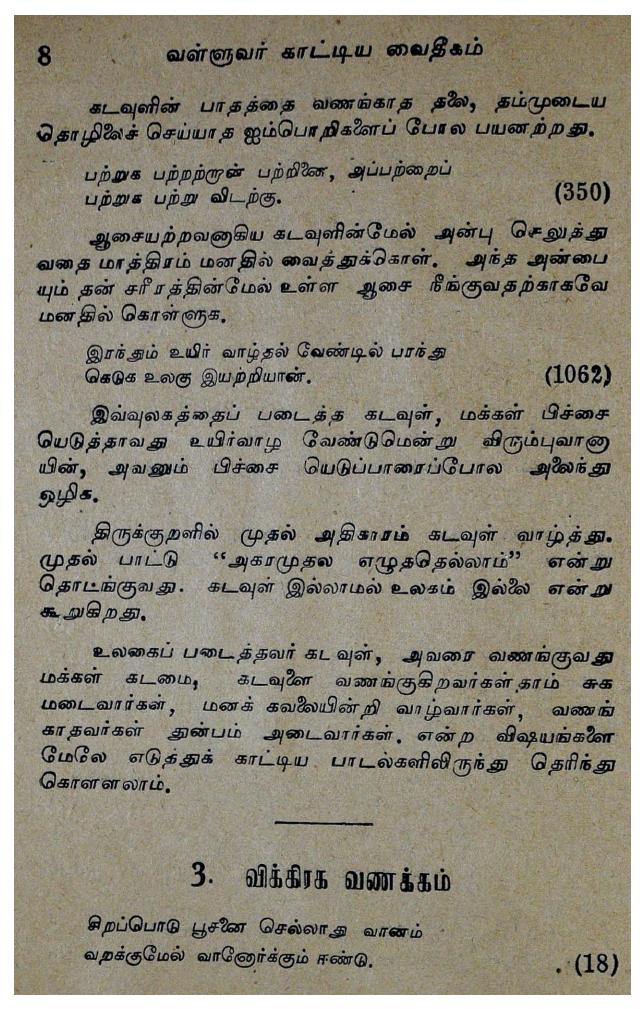 8 வள்ளுவர் காட்டிய வைதீகம்
கடவுளின் பாதத்தை வணங்காத தலை, தம்முடைய
தொழிலைச் செய்யாத ஐம்பொறிகளைப் போல பயனற்றது.
பற்றுக பற்றற்றான் பற்றினை, அப்பற்றைப்
பற்றுக பற்று விடற்கு. (350)
ஆசையற்றவனாகிய கடவுளின்மேல் அன்பு செலுத்து
வதை மாத்திரம் மனதில் வைத்துக்கொள். அந்த அன்பை
யும் தன் சரீரத்தின்மேல் உள்ள ஆசை நீங்குவதற்காகவே
மனதில் கொள்ளுக.
இரந்தும் உயிர் வாழ்தல் வேண்டில் பரந்து
கெடுக உலகு இயற்றியான். (1062)
இவ்வுலகத்தைப் படைத்த கடவுள், மக்கள் பிச்சை
யெடுத்தாவது உயிர்வாழ வேண்டுமென்று விரும்புவானா
யின், அவனும் பிச்சை யெடுப்பாரைப்போல அலைந்து
ஒழிக.
திருக்குறளில் முதல் அதிகாரம் கடவுள் வாழ்த்து.
முதல் பாட்டு “அகரமுதல எழுததெல்லாம்” என்று
தொடங்குவது. கடவுள் இல்லாமல் உலகம் இல்லை என்று
கூறுகிறது.
உலகைப் படைத்தவர் கடவுள், அவரை வணங்குவது
மக்கள் கடமை, கடவுளை வணங்குகிறவர்கள்தாம் சுக
மடைவார்கள், மனக் கவலையின்றி வாழ்வார்கள், வணங்
காதவர்கள் துன்பம் அடைவார்கள். என்ற விஷயங்களை
மேலே எடுத்துக் காட்டிய பாடல்களிலிருந்து தெரிந்து
கொளளலாம்.
3. விக்கிரக வணக்கம்
சிறப்பொடு பூசனை செல்லாது வானம்
வறக்குமேல் வானோர்க்கும் ஈண்டு. (18)